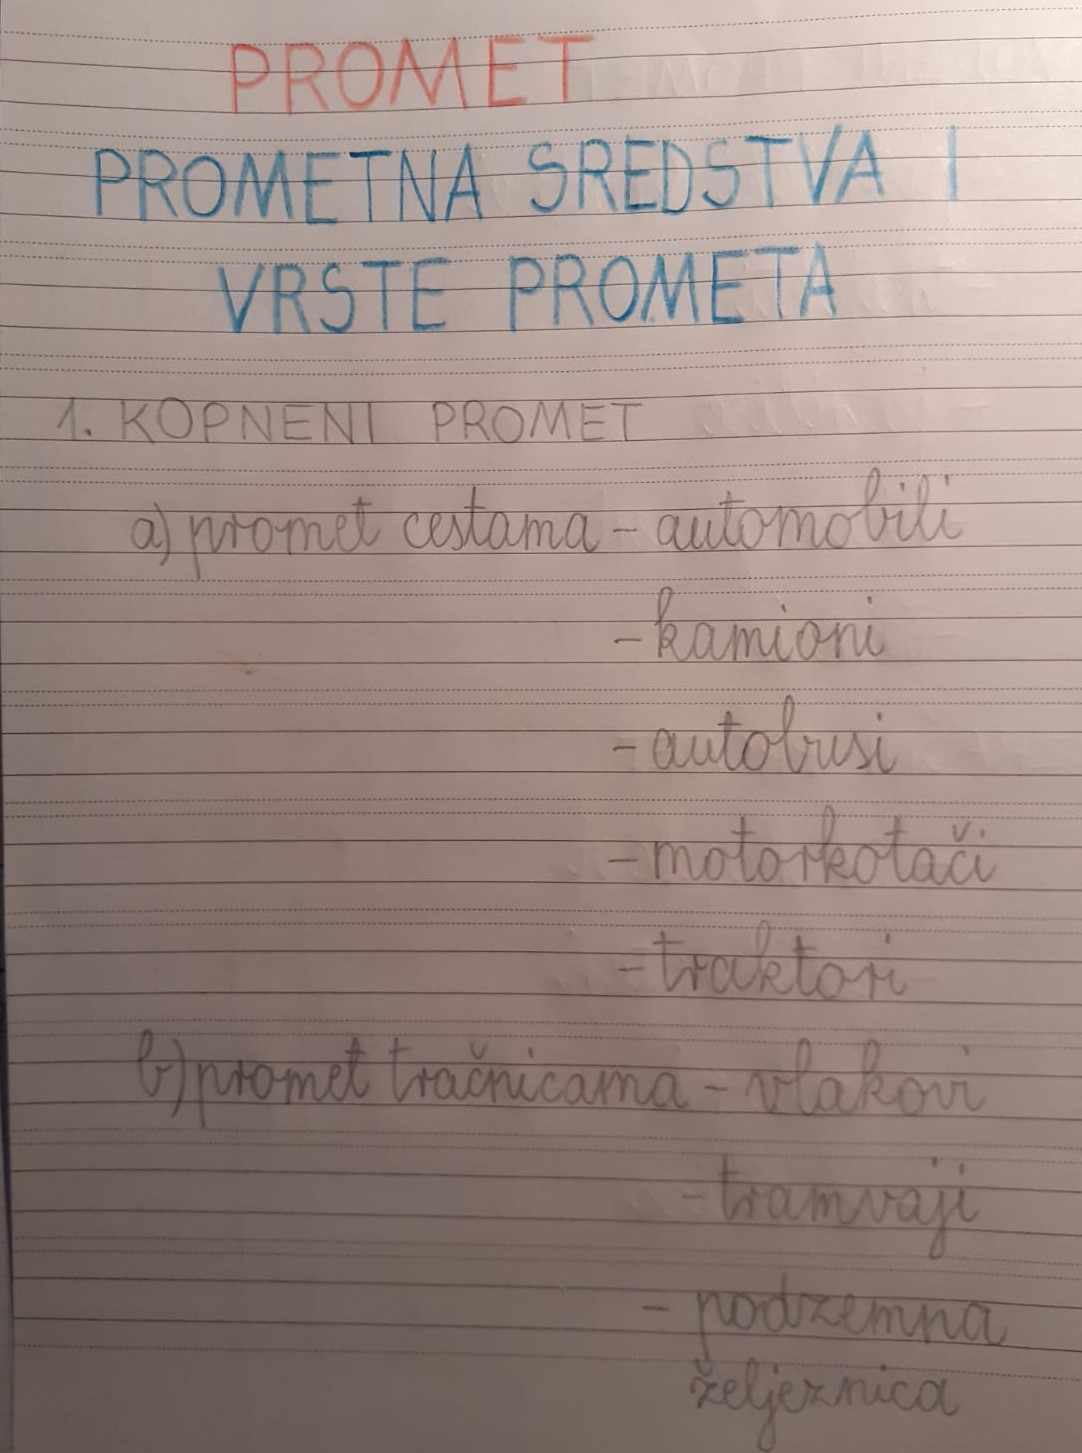 PROMET
PROMETNA SREDSTVA I
VRSTE PROMETA
1. KOPNENI PROMET
a) promet cestama - automobili
- kamioni
- autobusi
- motorkotači
- traktori
b) promet tračnicama - vlakovi
- tramvaji
- podzemna
željeznica